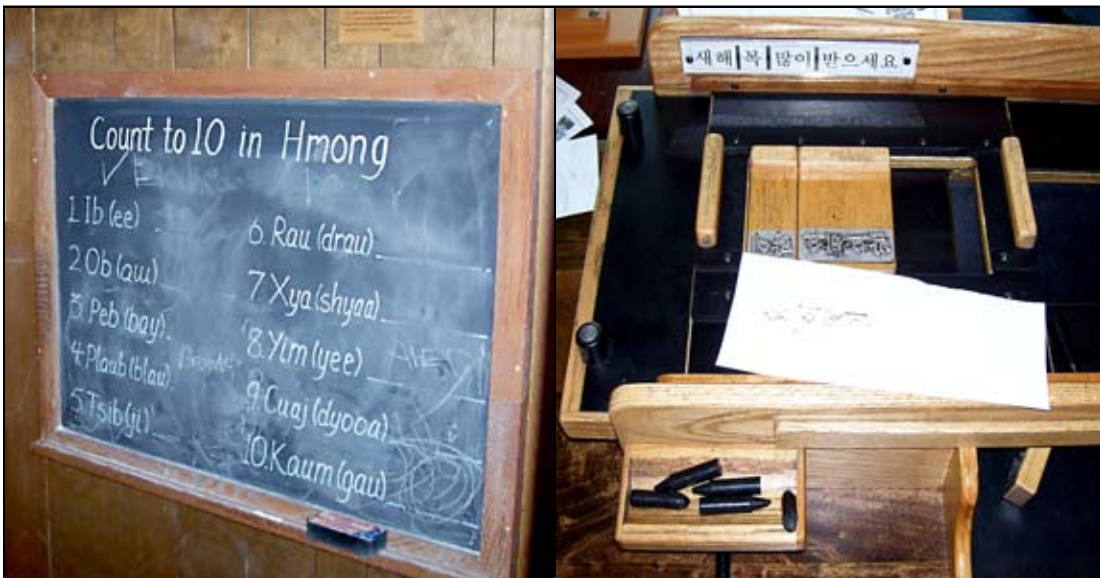 Count to 10 in Hmong
1. Ib (ee)
2. Ob (aw)
3. Peb (bay)
4. Plaub (blau)
5. Tsib (ji)
6. Rau (drau)
7. Xya (shyaa)
8. Yim (yee)
9. Cuaj (dyooa)
10. Kaum (gau)
새해 복 많이 받으세요